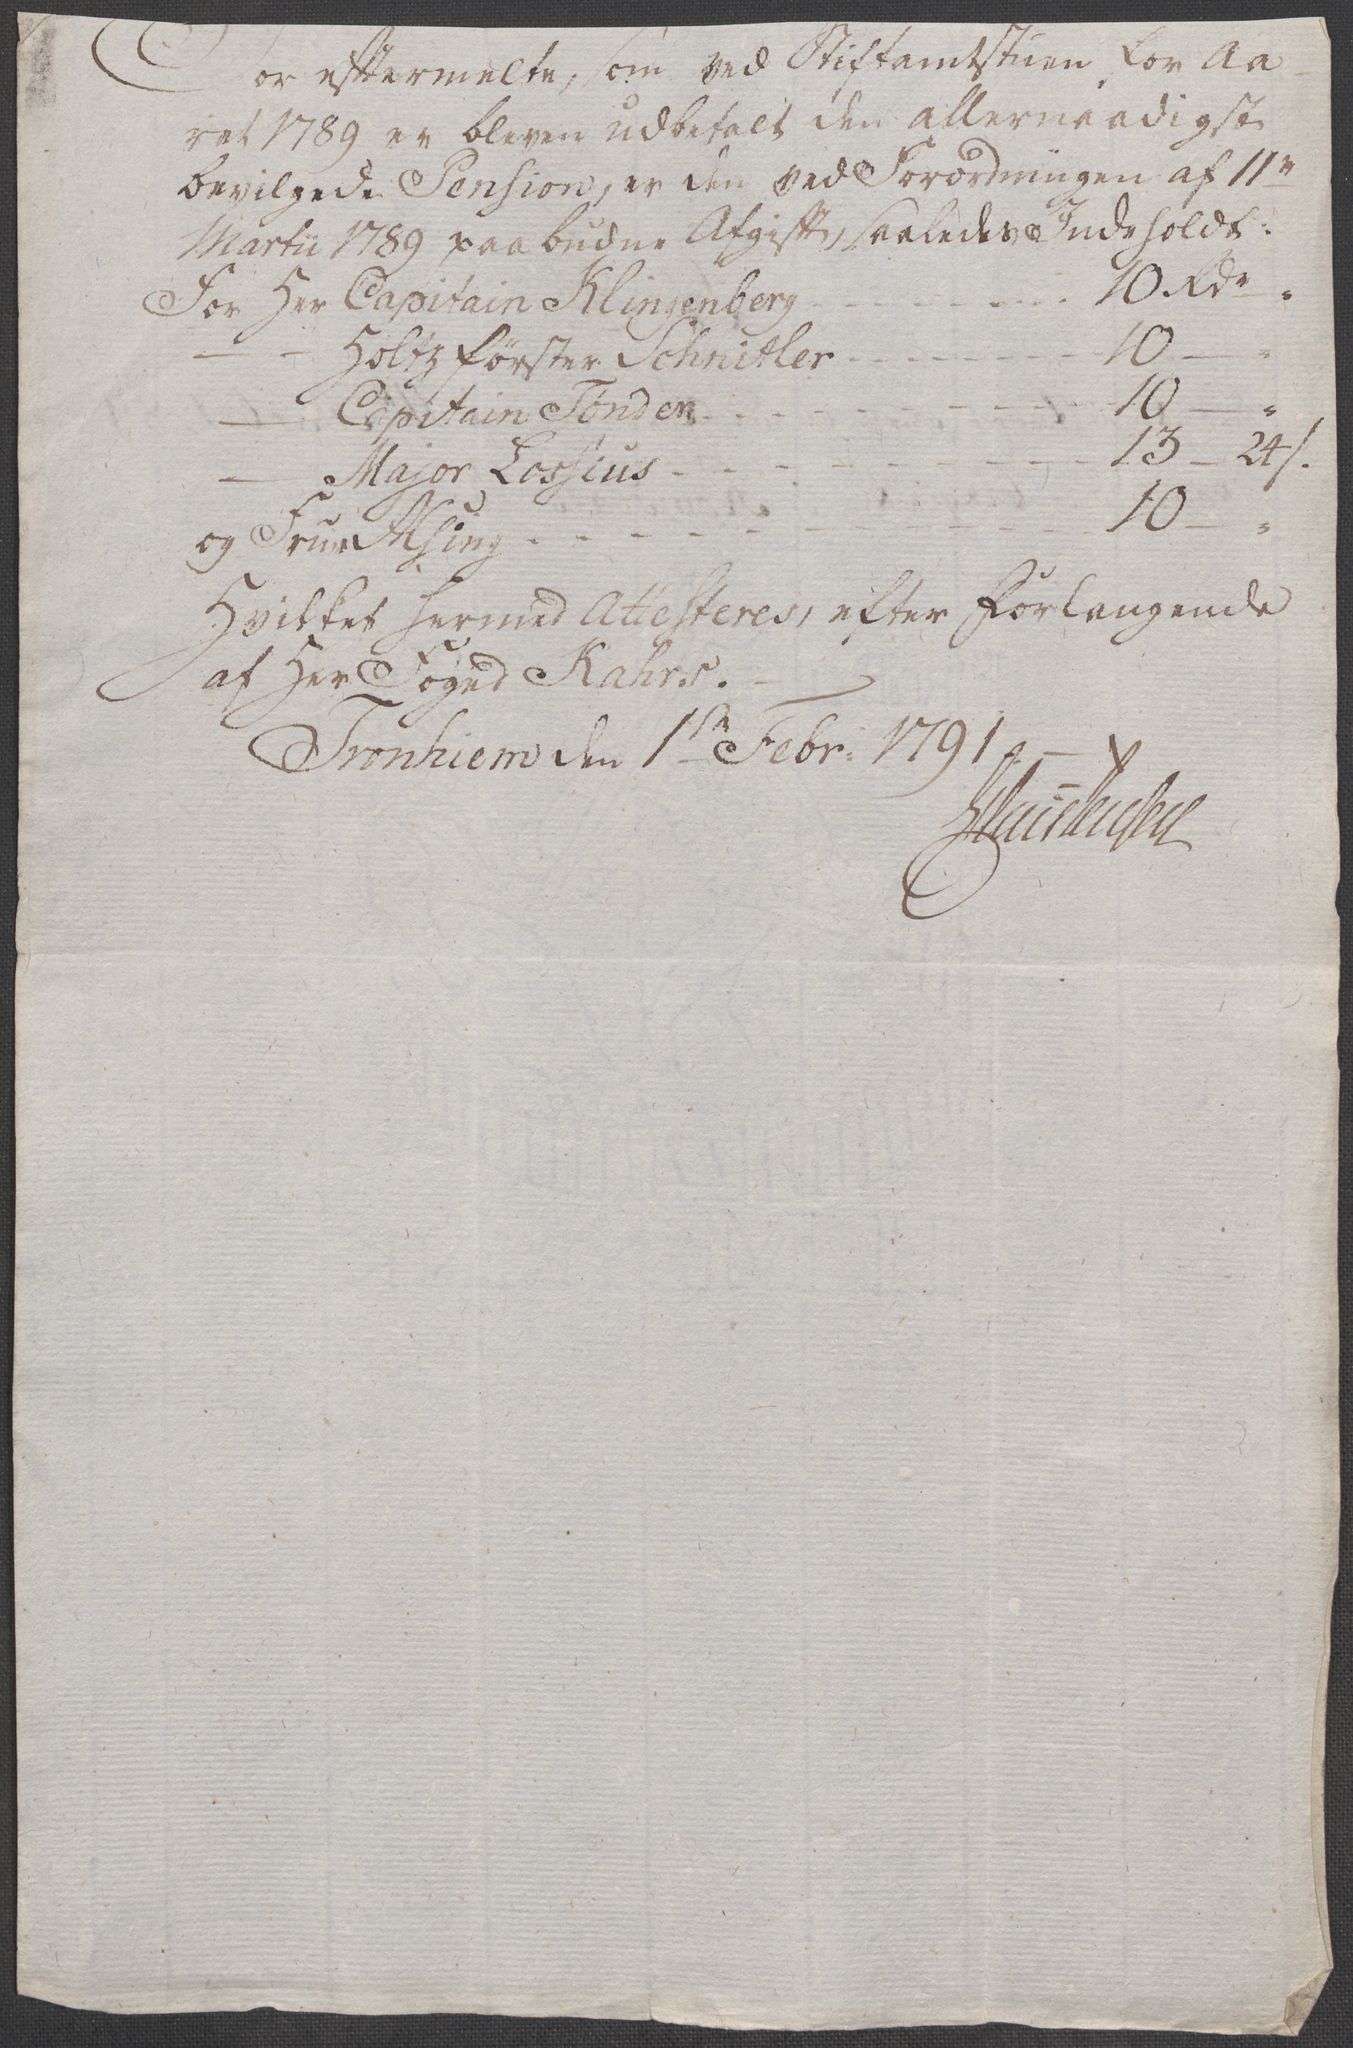 For efftermelte, som ved Stiftamtstuen for Aa-
ret 1789 er bleven udbetalt den allernaadigst
bevilgede Pension, er den ved Forordningen af 11te
Martii 1789 paabudne Afgifft, saaledes Indeholdt:
For Her Capitain Klingenberg - - - - - - - 10 Rdr "
— - Holtzførster Schnitler - - - - - - - 10 — "
— Capitain Tønder - - - - - - - 10 — "
— Major Lossius - - - - - - - 13 — 24 s.
og Frue Alsing - - - - - - - 10 — "
Hvilket hermed Attesteres, efter Forlangende
af Her Foged Kahrs. -
Tronhiem den 1ste Febr: 1791.